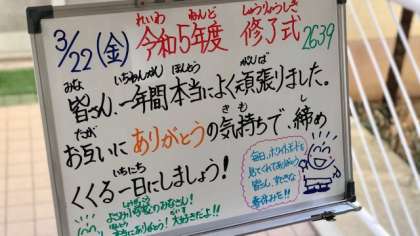 3/22(金) 令和5年度 修了式 2639
れいわ ねんど しゅうりょうしき
みな いちねんかん ほんとう がんば
皆さん、一年間本当によく頑張りました。
たが きも し
お互いにありがとうの気持ちで、締め
いちにち
くくる一日にしましょう！
毎日、ホワイトボードを
見てくれてありがとう
皆さん、すてきな
春休みを!!
本当にありがとう！大好きだよ!!